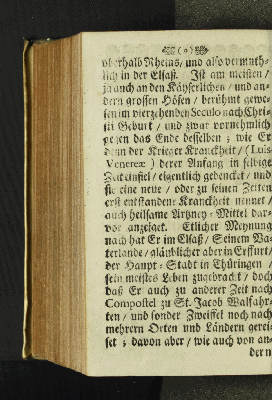 (0)
oberhalb Rheins, und also vermuth-
lich in der Elsaß. Ist am meisten /
ja auch an den Käyserlichen / und an-
dern grossen Höfen / berühmt gewe-
sen im vierzehenden Seculo nach Chri-
sti Geburt / und zwar vornehmlich
gegen das Ende desselben ; wie Er
denn der Krieger Kranckheit / (Luis
Venereæ) derer Anfang in selbige
Zeit einfiel / eigentlich gedencket / und
sie eine neue / oder zu seinen Zeiten
erst entstandene Kranckheit nennet /
auch heilsame Artzney-Mittel dar-
vor anzeiget. Etlicher Meynung
nach hat Er im Elsaß / Seinem Va-
terlande / gläublicher aber in Erffurt /
der Haupt-Stadt in Thüringen /
sein meistes Leben zugebracht / doch
daß Er auch zu anderer Zeit nach
Compostel zu St. Jacob Walfahr-
ten / und sonder Zweiffel noch nach
mehrern Orten und Ländern gerei-
set ; davon aber / wie auch von an-
dern